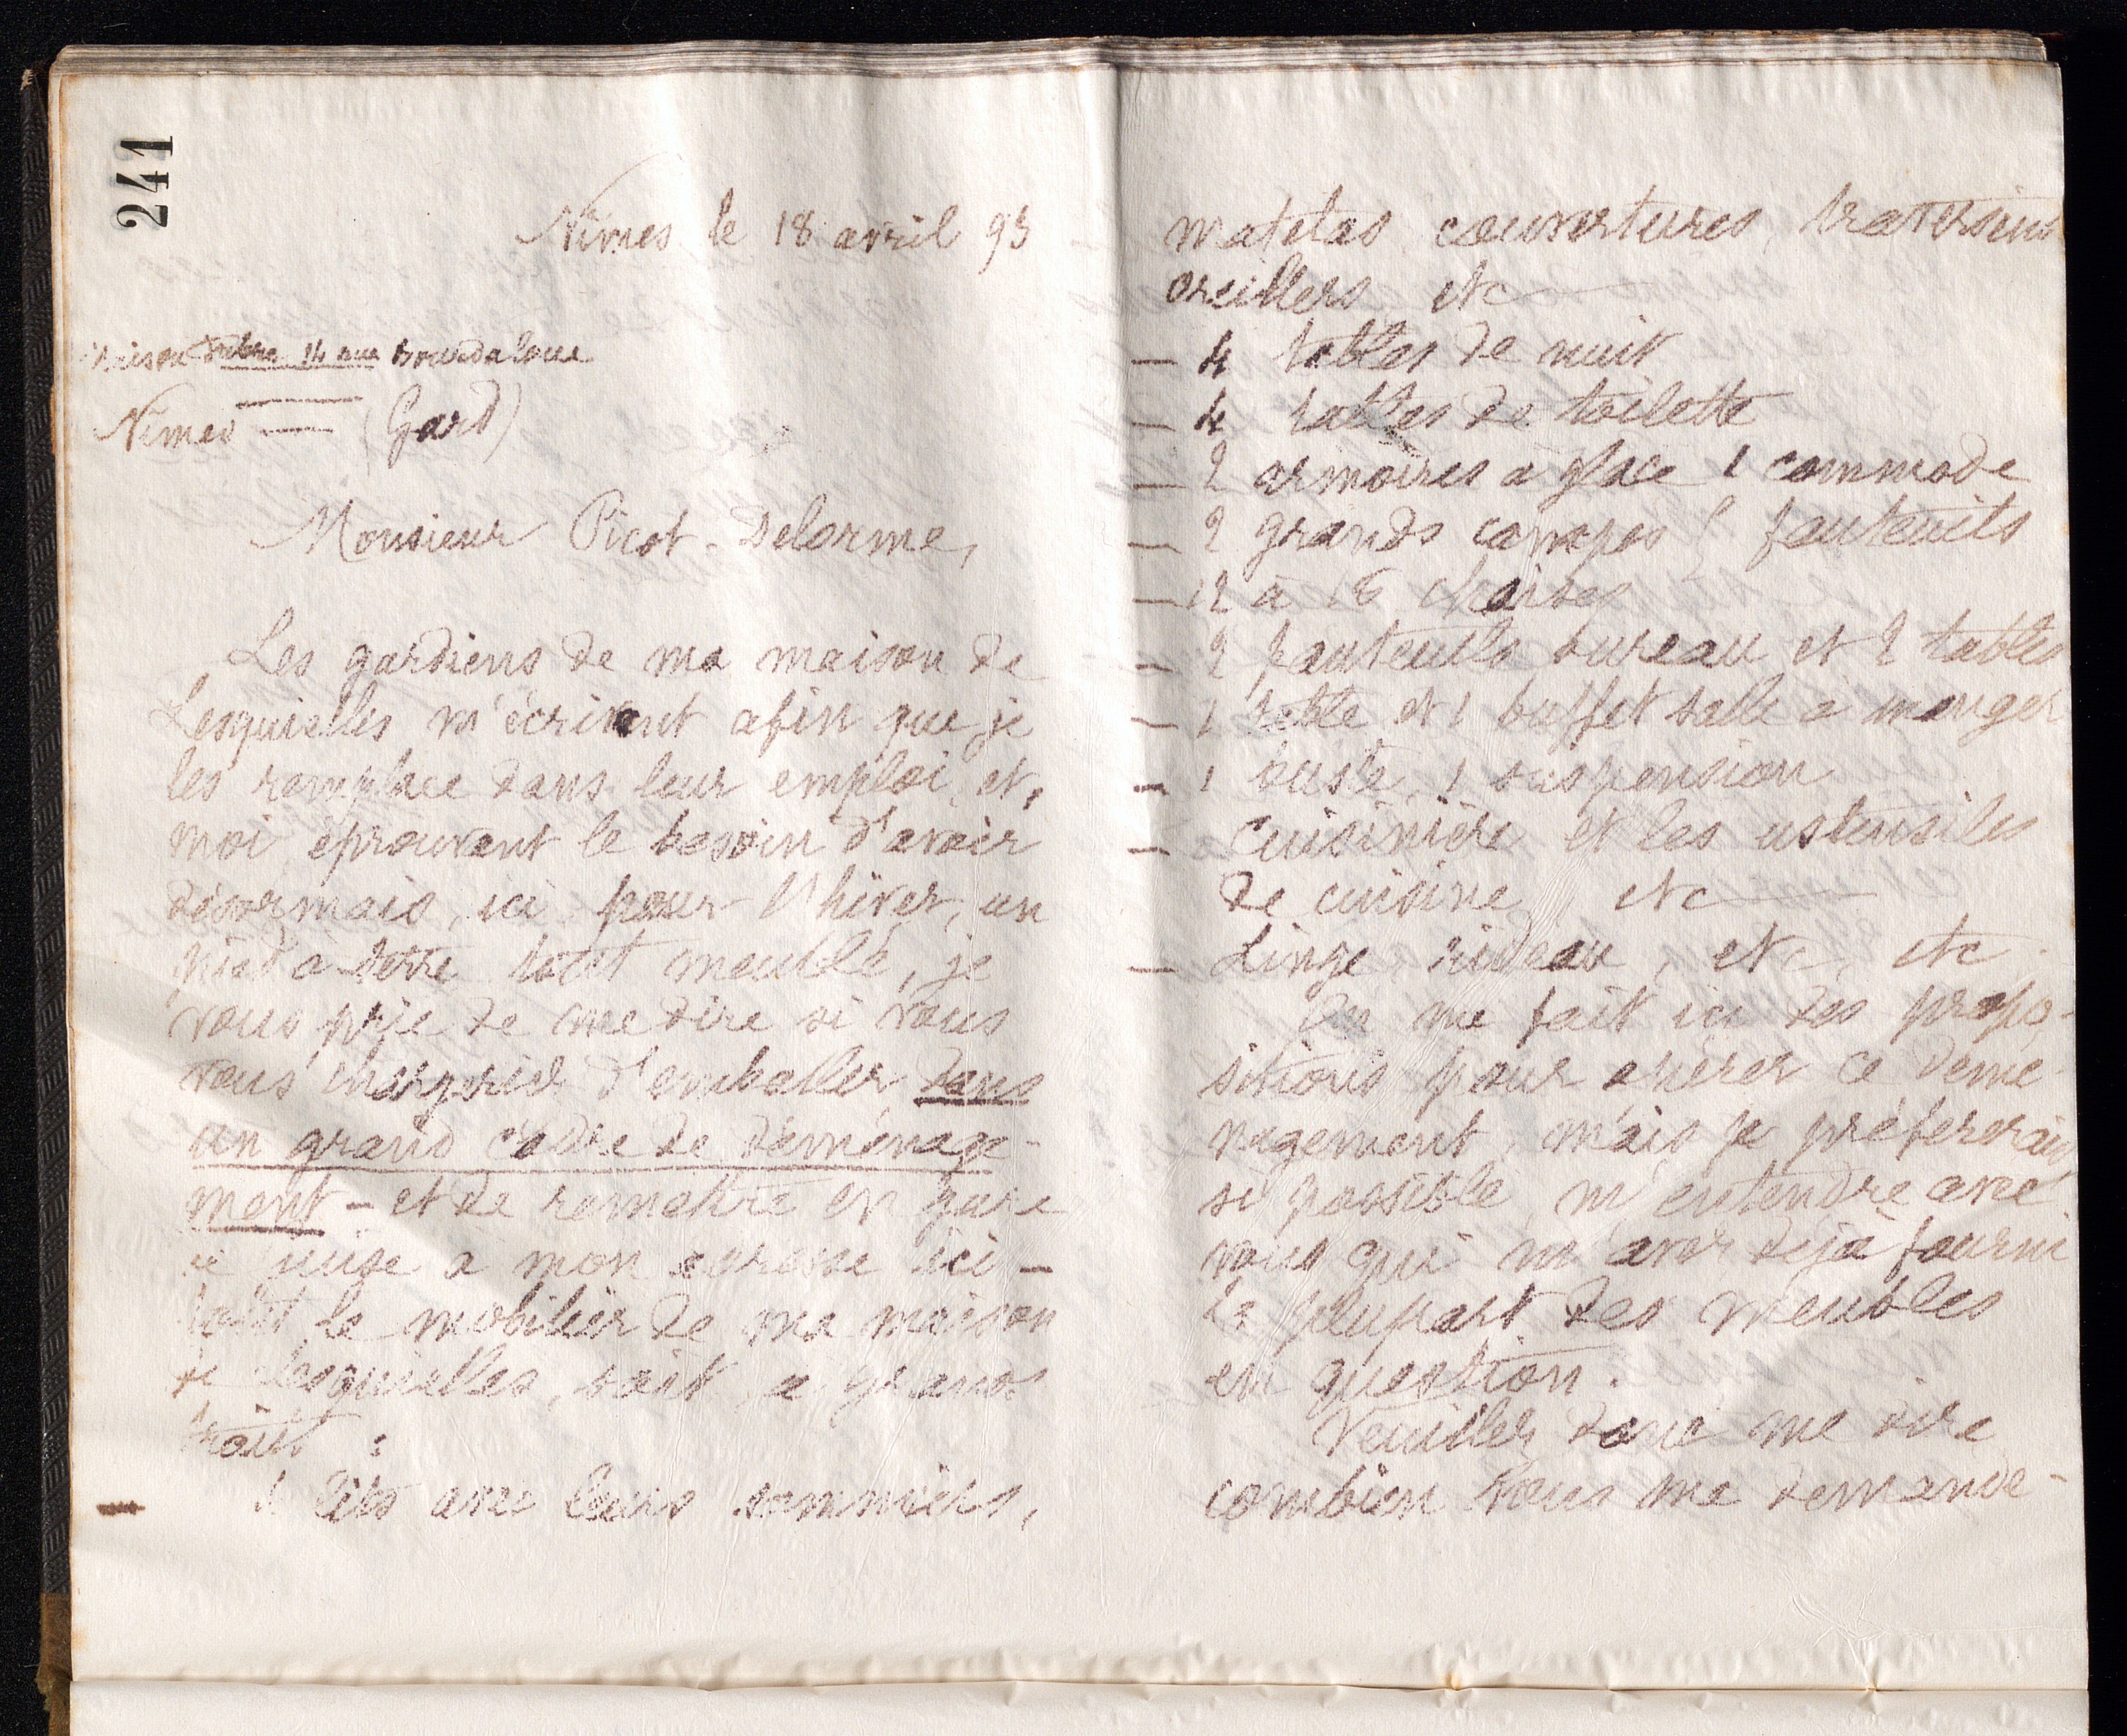 241
Nîmes le 18 avril 93
14 rue Bourdaloue
Nîmes — (Gard)
Monsieur Picot-Delorme,
Les gardiens de ma maison de
Lesquielles m'écrivent afin que je
les remplace dans leur emploi, et,
moi éprouvant le besoin d'avoir
désormais, ici pour l'hiver, un
pied à terre tout meublé, je
vous prie de me dire si vous
vous chargeriez d'emballer dans
un grand cadre de déménage-
ment – et de remettre en gare
de Guise à mon adresse ici –
tout le mobilier de ma maison
de Lesquielles, soit, a grands
traits :
lits avec leurs sommiers,
matelas couvertures, traversins
oreillers etc
— 4 tables de nuit
— 4 tables de toilette
— 2 armoires à glace 1 commode
— 2 grands canapés fauteuils
— 12 à 18 chaises
— 2 fauteuils bureau et 2 tables
— 1 table et 1 buffet salle à manger
— 1 buste, 1 suspension
— cuisinière et les ustensiles
de cuisine etc
— Linge rideau, etc, etc.
On me fait ici des propo-
sitions pour opérer ce démé-
nagement, mais je préfererais
si possible m'entendre avec
vous qui m'avez déjà fourni
la plupart des meubles
en question.
Veuillez donc me dire
combien vous me demande-